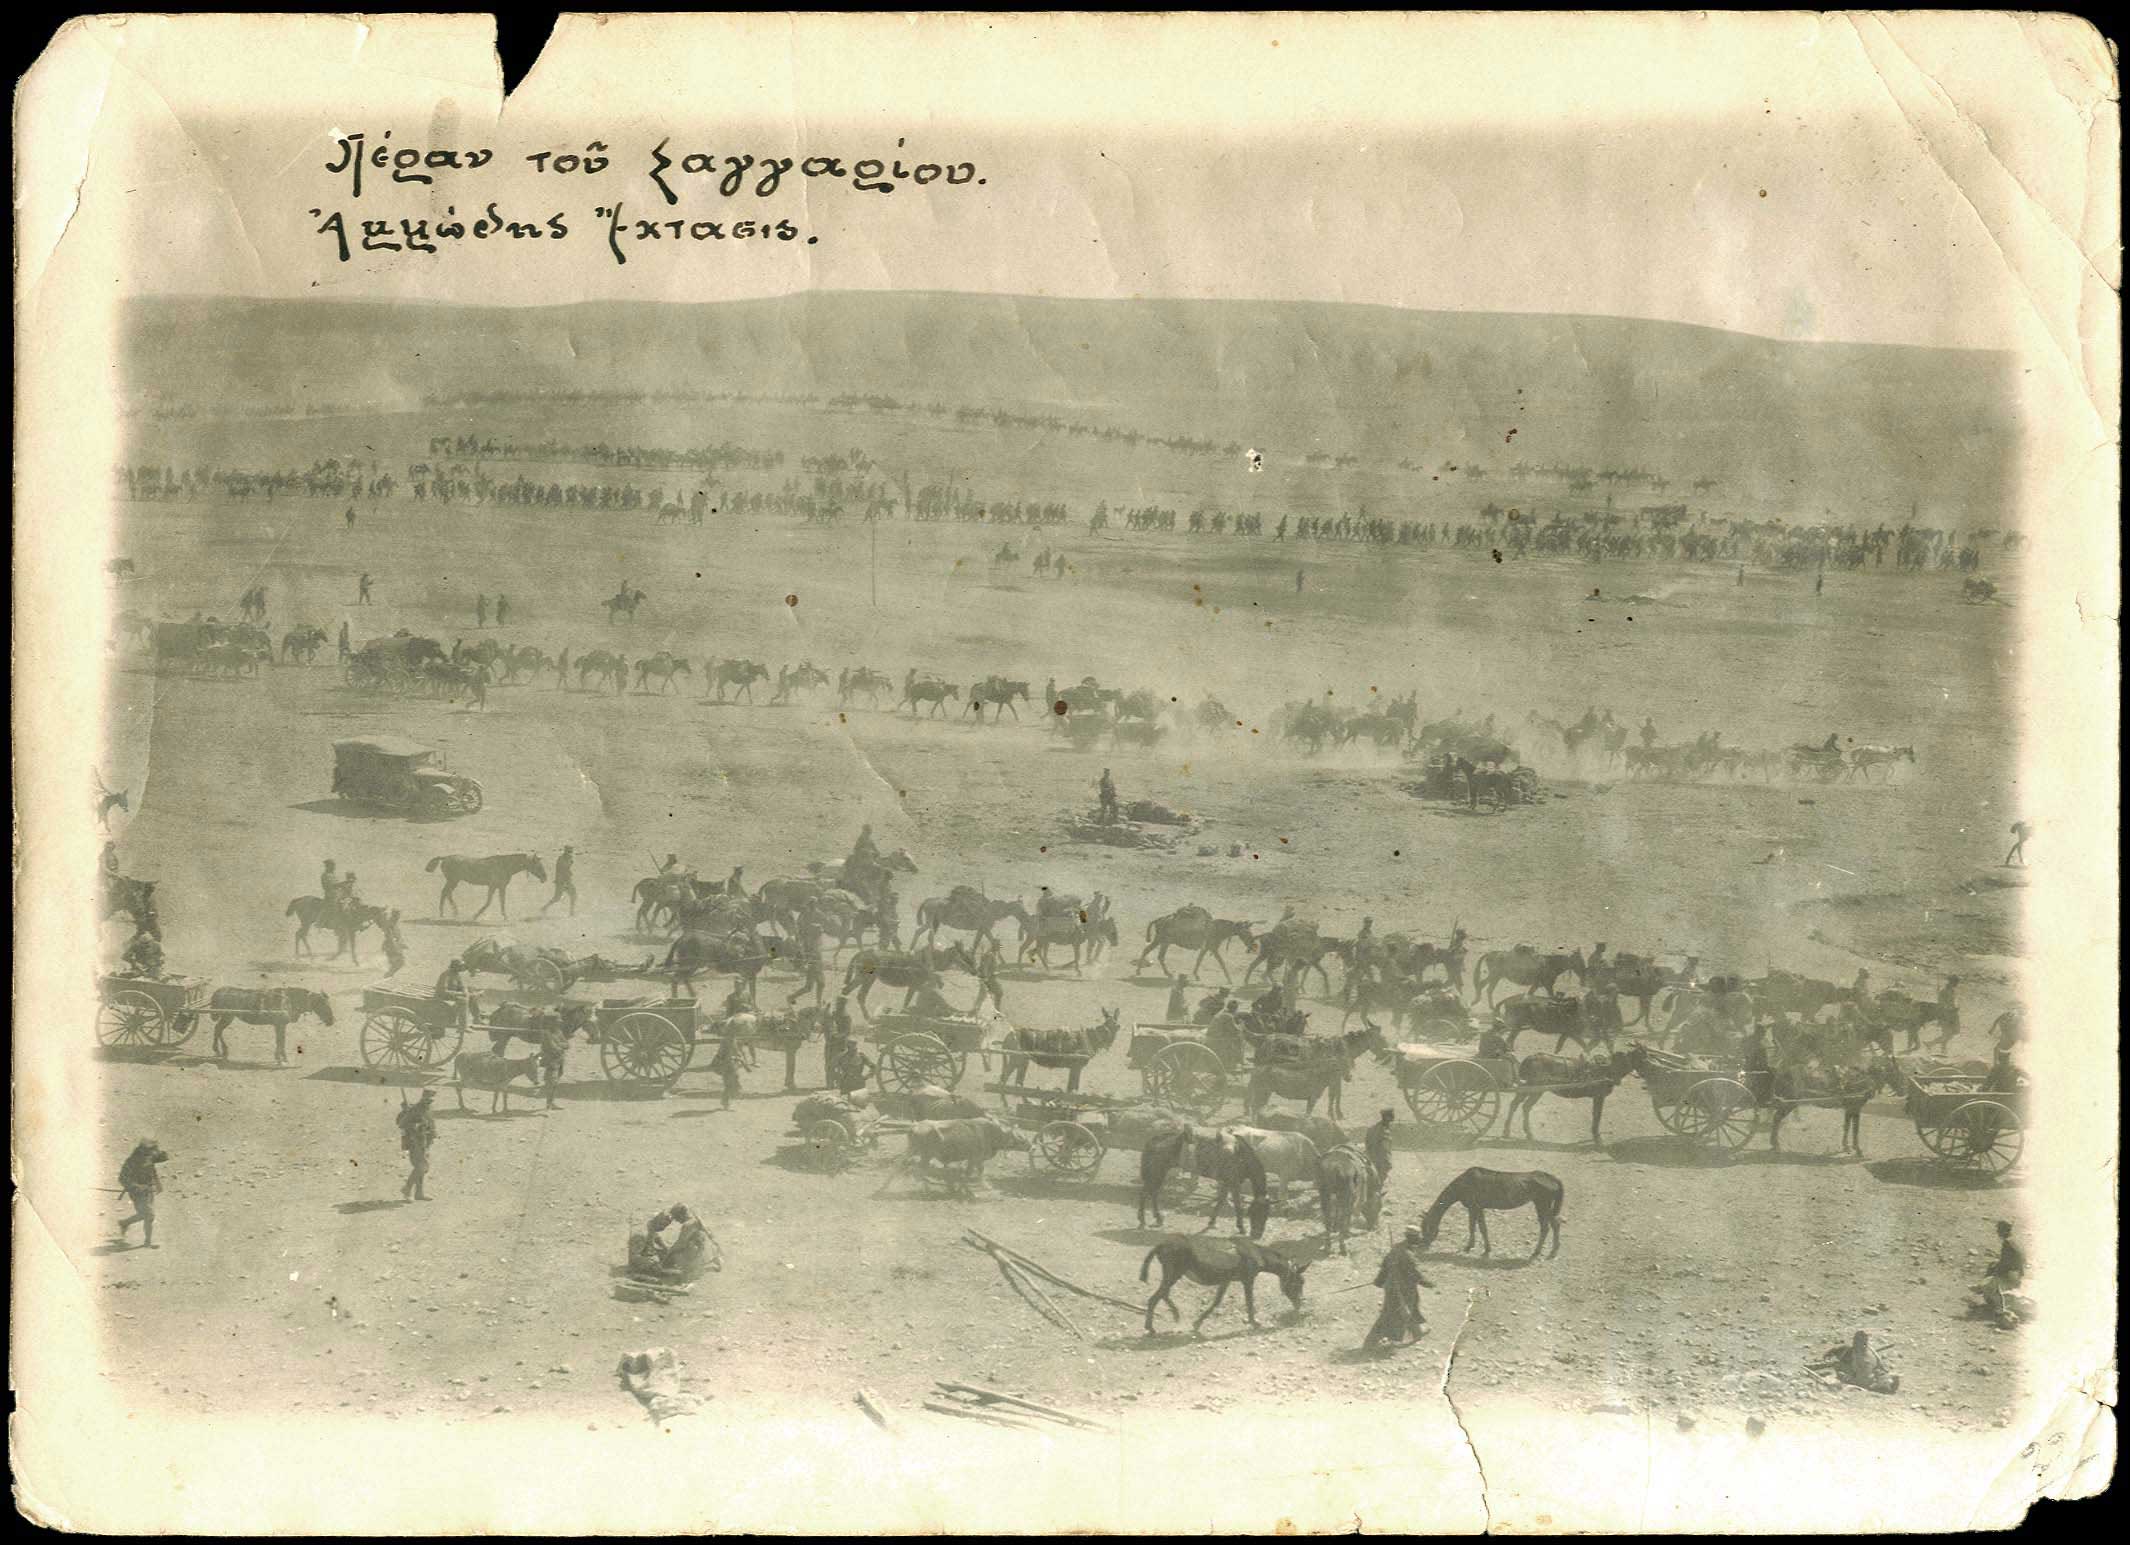 Πέραν τοῦ Σαγγαρίου.
Ἀμμώδης Ἔκτασις.